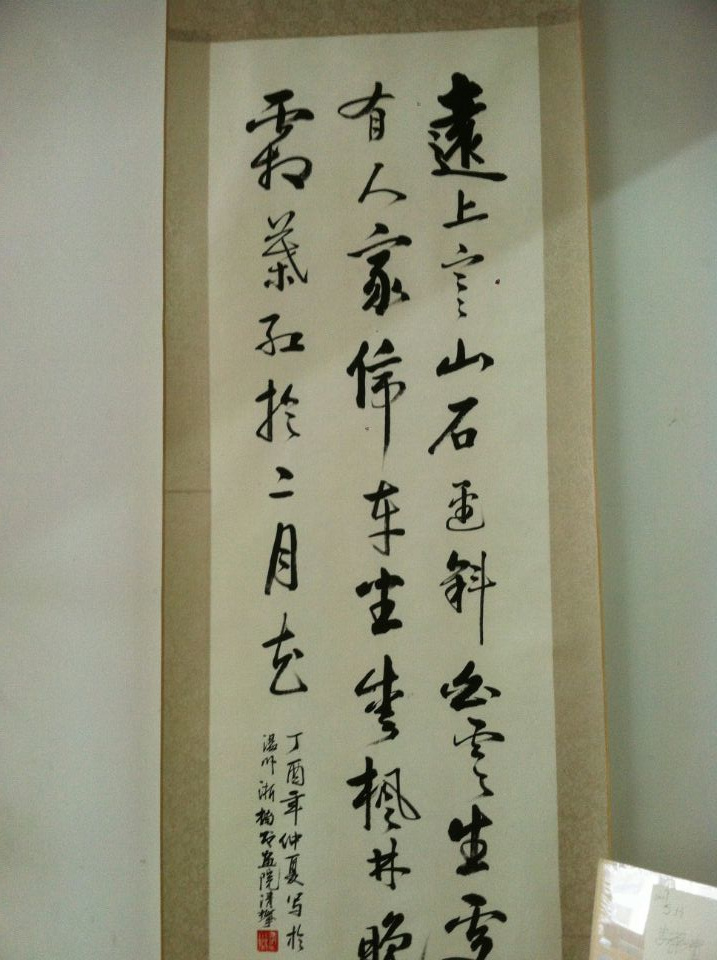 遠上寒山石逕斜白雲生處
有人家停车坐愛楓林晚
霜葉红於二月花
丁酉年仲夏写於
温州浙画院清